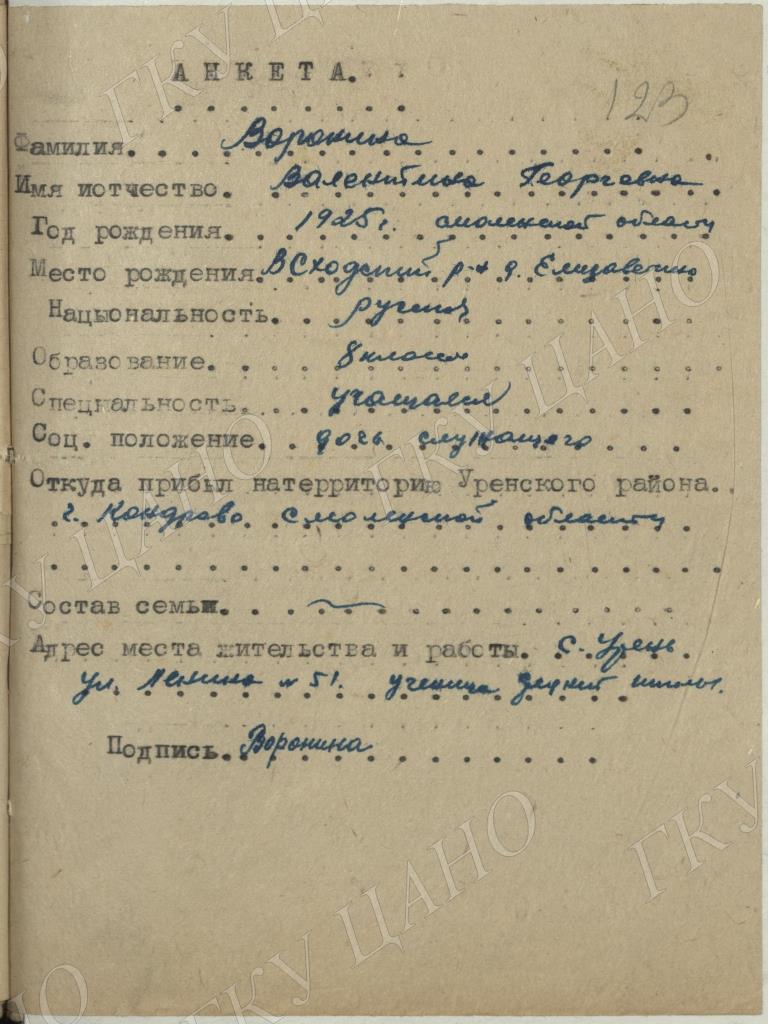 АНКЕТА.
123
Фамилия. Воронина
Имя иотчество. Валентина Георгевна
Год рождения. 1925г. смоленской области
Место рождения. Всходский р-н д. Елизаветино
Нацыональность. русская
Образование. 8 класса
Специальность. учащаяся
Соц. положение. дочь служащего
Откуда прибыл натерриторию Уренского района.
г. Кондрово Смоленской области
Состав семьи.
Адрес места жительства и работы. с. Урень
ул. Ленина № 51. ученица средней школы.
Подпись. Воронина
ГКУ ЦАНО